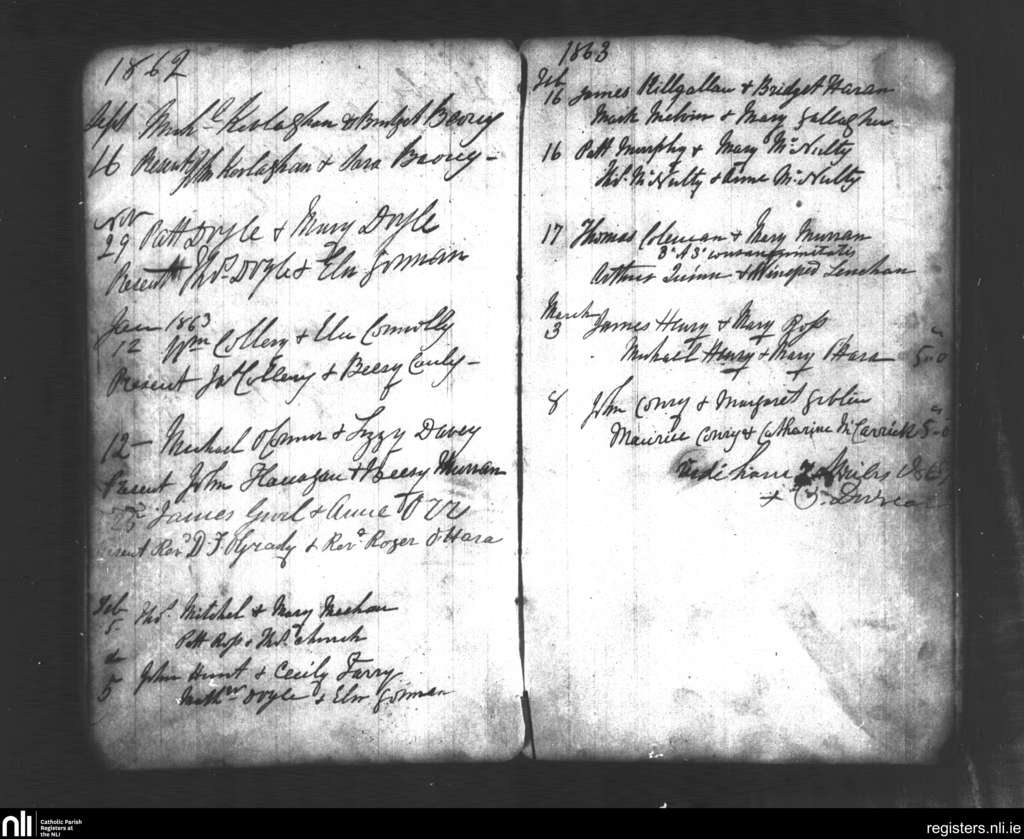 1862
Sept Mich.l Kerlaghan & Bridget Beorey
16 Present John Kerlaghan & Sara Beorey -
Nov
29 Patt Doyle & Mary Doyle
Present Tho.s Doyle & Eln Gorman
Jan 1863
12 Wm Collery & Connolly
Present Jas Collery & Beesy -
12 - Michael O'Connor & Lizzy Davey
Present John Flanagan & Beesy Murran
25 James & Anne
Present Revd D. F. O'Grady & Revd Roger O'Hara
Feb
5. Tho.s Mitchel & Mary Meehan
Patt Ross & Tho.s Church
5 John Hunt & Cecily Farry
Doyle & Eln Gorman
1863
Feb
16 James Killgallan & Bridget Haran
Mark Melvin & Mary Gallagher
16 Patt Murphy & Mary McNulty
Tho.s McNulty & Anne McNulty
17 Thomas Coleman & Mary Murran
3° A 3° consanguinitatis
Arthur Quinn & Winifred Lenehan
March
3 James Henry & Mary Ross
Michael Henry & Mary O'Hara 5-0
8 John Conry & Margaret Giblin
Maurice Conry & Catharine McCarrick 5-0